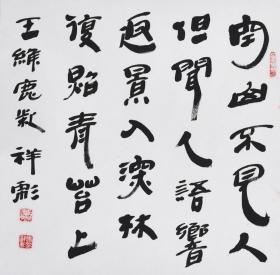 空山不見人
但聞人語響
返景入深林
復照青苔上
王維鹿柴 祥彰